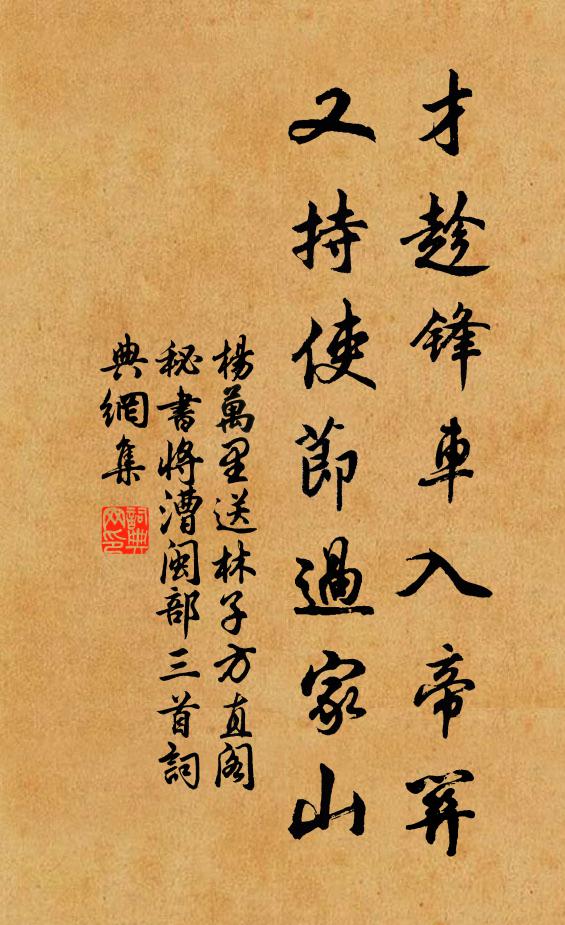 才趁鋒車入帝關
又持使節過家山
楊萬里送林子方直閣
秘書將漕閩部三首詞
典網集
詞典
网印